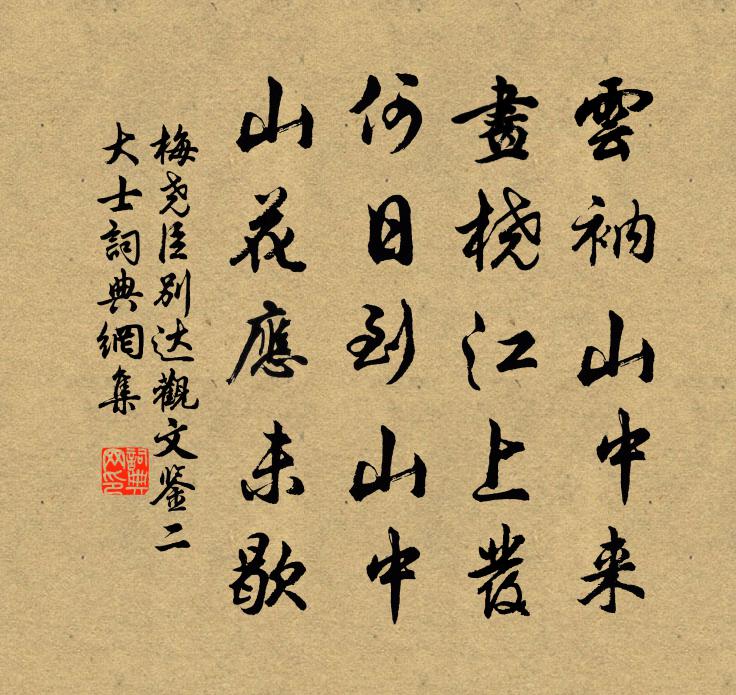 雲衲山中来
畫橈江上發
何日到山中
山花應未歇
梅尧臣別达觀文鉴二
大士詞典網集
詞典網印